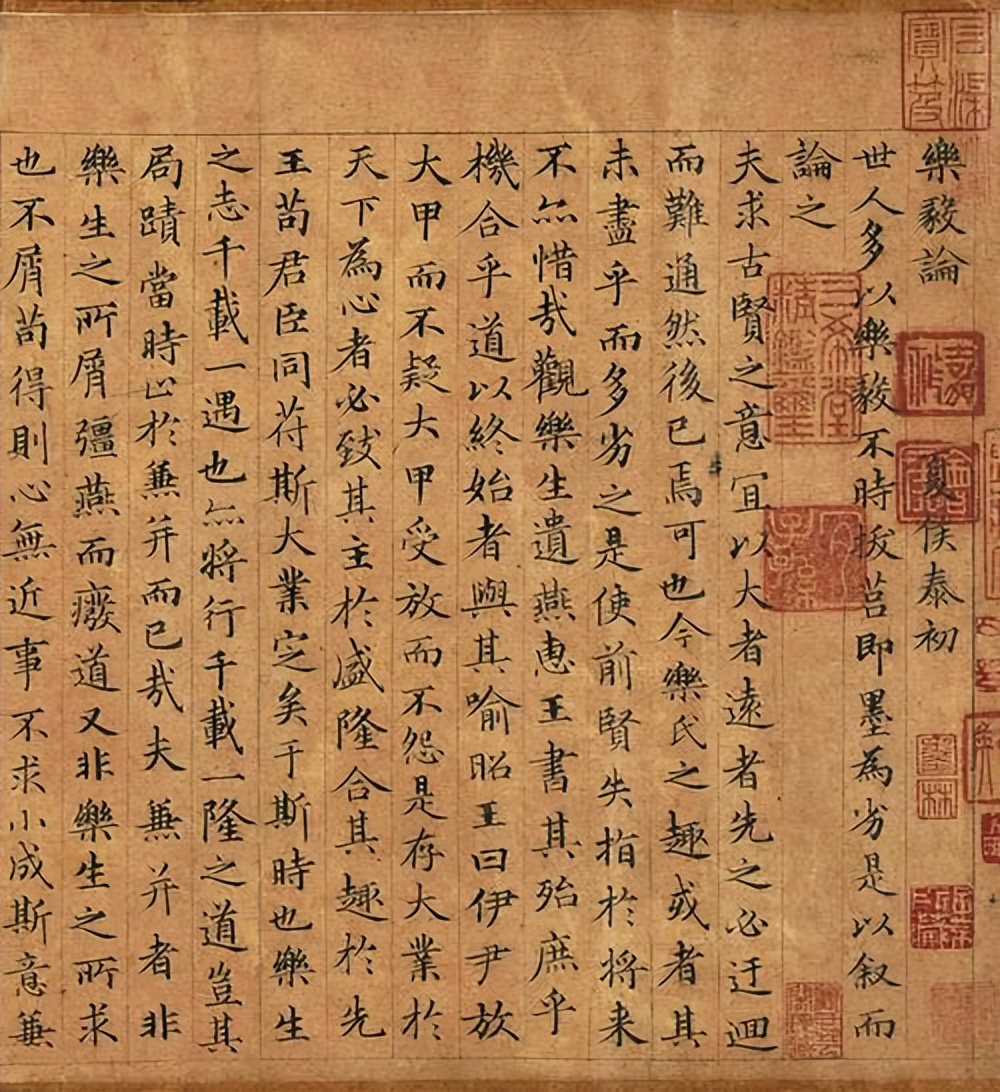 樂毅論 夏侯泰初
世人多以樂毅不時拔莒即墨為劣是以叙而
論之
夫求古賢之意宜以大者遠者先之必迂迴
而難通然後已焉可也今樂氏之趣或者其
未盡乎而多劣之是使前賢失指於將来
不亦惜哉觀樂生遺燕惠王書其殆庶乎
機合乎道以終始者與其喻昭王曰伊尹放
大甲而不疑大甲受放而不怨是存大業於
天下為心者必致其主於盛隆合其趣於先
王苟君臣同苻斯大業定矣于斯時也樂生
之志千載一遇也亦將行千載一隆之道豈其
局蹟當時止於蒹并而已哉夫蒹并者非
樂生之所屑彊燕而癈道又非樂生之所求
也不屑苟得則心無近事不求小成斯意蒹
三希堂精鑒璽
宜子孫